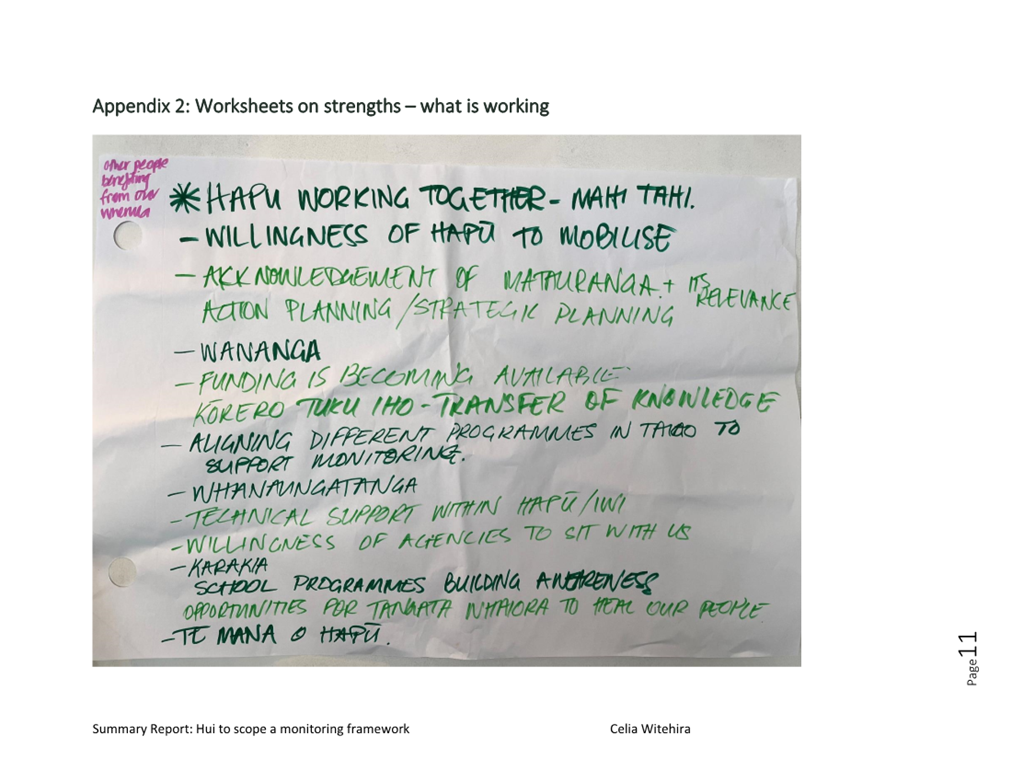 Appendix 2: Worksheets on strengths – what is working
other people
benefiting
from our
whenua
* HAPU WORKING TOGETHER - MAHI TAHI.
- WILLINGNESS OF HAPŪ TO MOBILISE
- AKKNOWLEDGEMENT OF MATAURANGA. + ITS RELEVANCE
ACTION PLANNING / STRATEGIC PLANNING
- WANANGA
- FUNDING IS BECOMING AVAILABLE
KŌRERO TUKU IHO - TRANSFER OF KNOWLEDGE
- ALIGNING DIFFERENT PROGRAMMES IN TAIAO TO
SUPPORT MONITORING.
- WHANAUNGATANGA
- TECHNICAL SUPPORT WITHIN HAPŪ/IWI
- WILLINGNESS OF AGENCIES TO SIT WITH US
- KARAKIA
SCHOOL PROGRAMMES BUILDING AWARENESS
OPPORTUNITIES FOR TANGATA WHAIORA TO HEAL OUR PEOPLE
- TE MANA O HAPŪ.
Page 11
Summary Report: Hui to scope a monitoring framework Celia Witehira